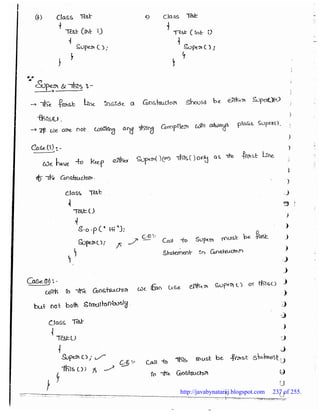 (8) class Test
{
Test (int i)
{
Super();
}
}
9) class Test
{
Test (int i)
{
Super();
}
}
Super & this :-
→ The first Line inside a Constructor should be either Super() or
this().
→ If we are not writing any thing Compiler will always place Super().
Case(1):-
We have to keep either Super() (or) this() only as the first Line
of the Constructor.
class Test
{
Test()
{
S.o.p("Hi");
Super();
}
}
C.E:- Call to Super must be first
Statement in Constructor
Case(2):-
with in the Constructor we Can use either Super() or this()
but not both Simultaniously
class Test
{
Test()
{
Super(); ✓
this();
}
}
C.E:- Call to this must be first statement
in the Constructor
http://javabynataraj.blogspot.com 237 of 255.